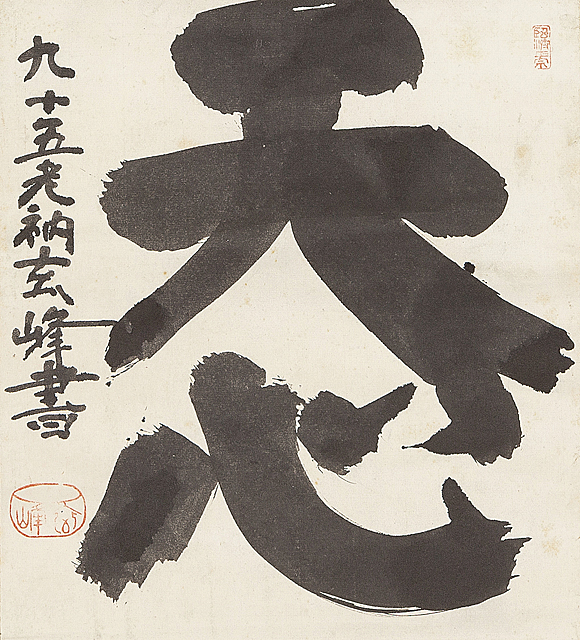 天心
九十五老衲玄峰書